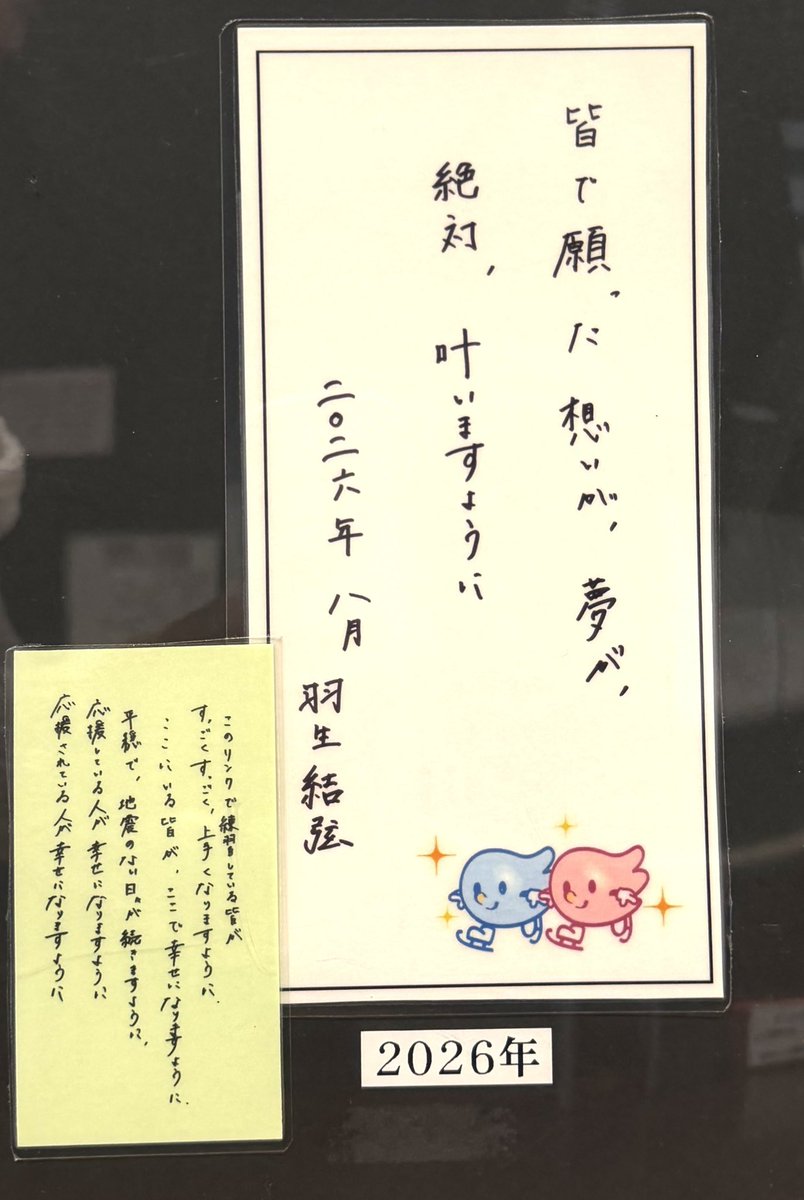 皆で願った想いが、夢が、
絶対、叶いますように
二〇二六年 八月 羽生結弦
このリンクで練習している皆が
すっごくすっごく、上手くなりますように、
ここにいる皆が、ここで幸せになりますように、
平穏で、地震のない日々が続きますように、
応援している人が幸せになりますように
応援されている人が幸せになりますように
2026年